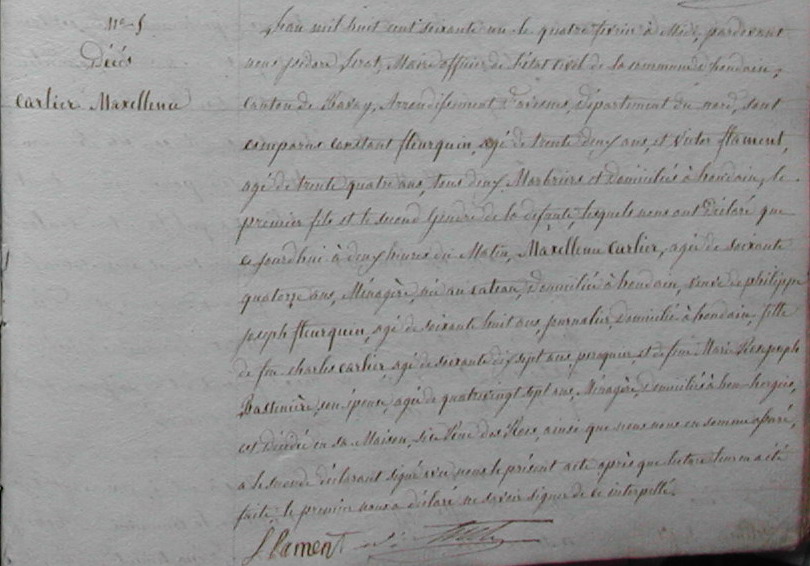 N° 5
Décès
Carlier Maxellene
L'an mil huit cent soixante un le quatre fevrier à Midi, pardevant
nous Isidore Marie officier de l'état civil de la commune d'houdain,
Canton de Bavay, Arrondissement d'avesnes, Département du nord, sont
comparus Constant fleurquin, agé de trente deux ans, et Victor flament,
agé de trente quatre ans, tous deux Marbriers et domiciliés à houdain, le
premier fils et le second Gendre de la defunte, lesquels nous ont déclaré que
ce jourd'hui à deux heures du Matin, Maxellene Carlier, agée de soixante
quatorze ans, Ménagère, née au Cateau, domiciliée à houdain, veuve de philippe
joseph fleurquin, agé de soixante huit ans, journalier, domicilié à houdain, fille
de feu charles Carlier, agé de soixante dix sept ans, peruquier, et de feue Marie
son épouse, agée de quatre vingt sept ans, Ménagère, domiciliés à
est décédée en sa Maison, sise Rue des ainsi que nous nous en somme assuré,
a le second déclarant signé avec nous le présent acte après que lecture leur en a été
faite, le premier nous a déclaré ne savoir signer de ce interpellé.
flament